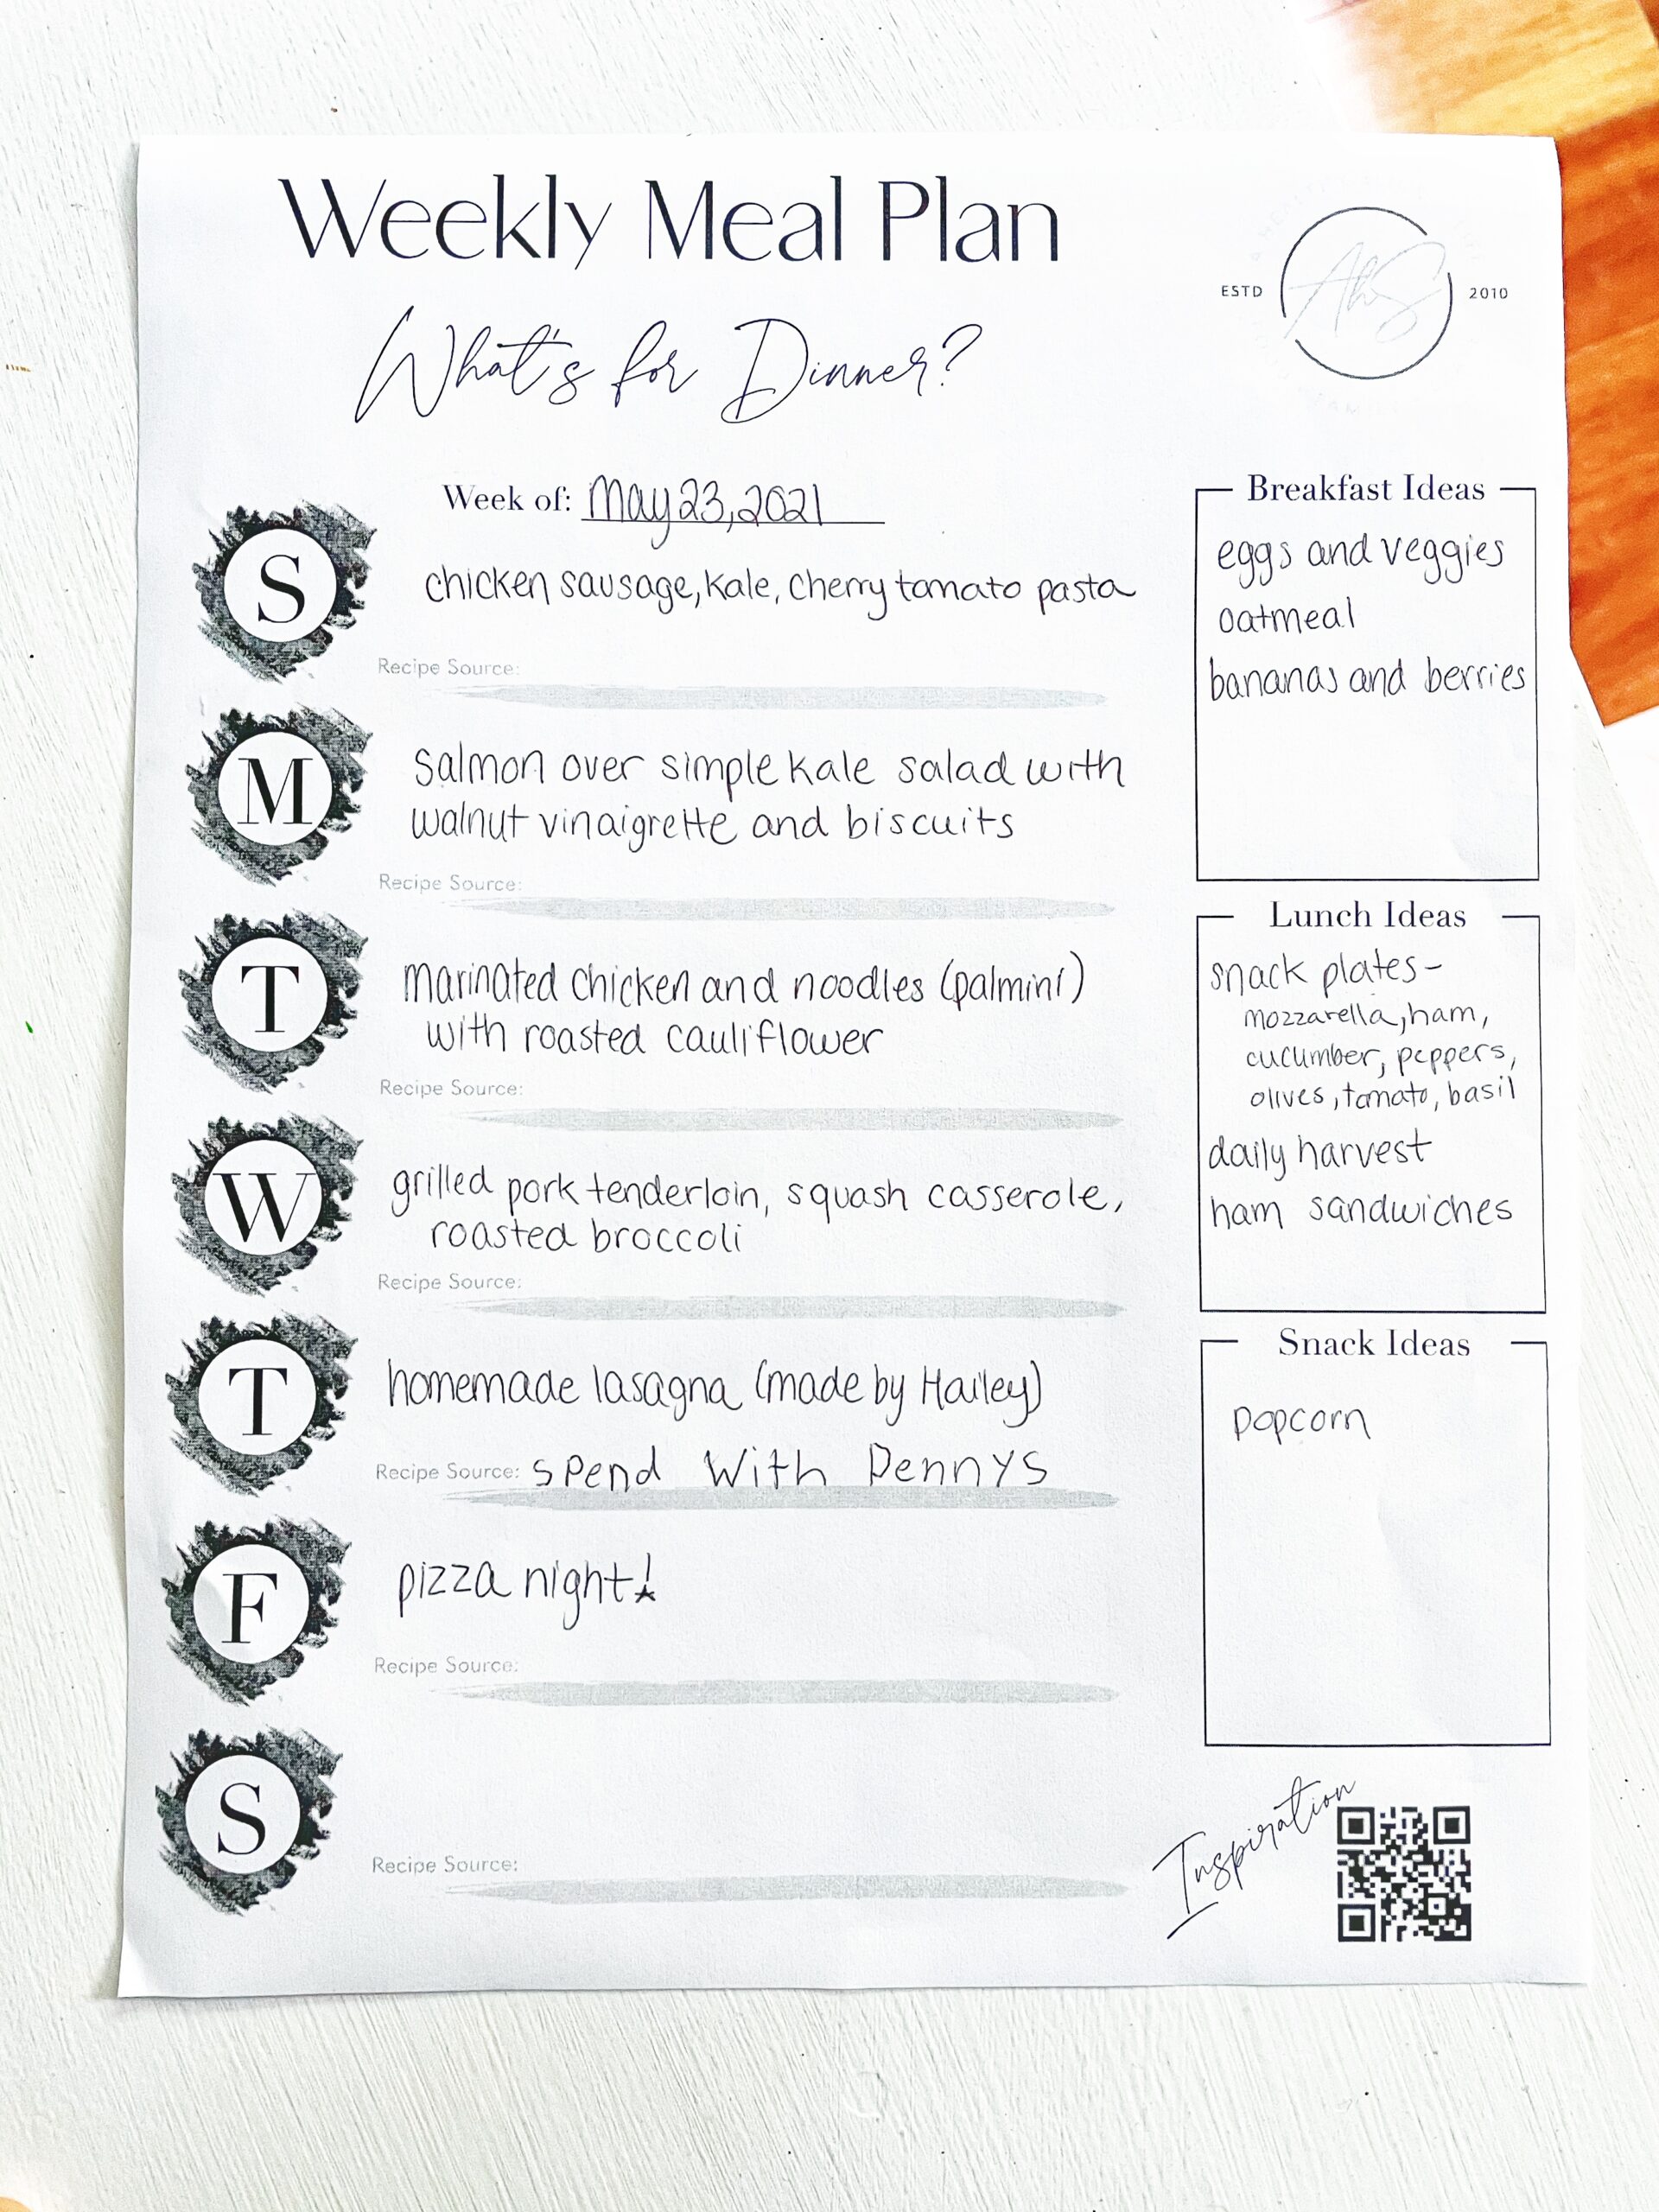 Weekly Meal Plan
What's for Dinner?
ESTD
AhS
2010
Week of: May 23, 2021
S
chicken sausage, kale, cherry tomato pasta
Recipe Source:
M
Salmon over simple kale salad with
walnut vinaigrette and biscuits
Recipe Source:
T
marinated chicken and noodles (palmini)
with roasted cauliflower
Recipe Source:
W
grilled pork tenderloin, squash casserole,
roasted broccoli
Recipe Source:
T
homemade lasagna (made by Hailey)
Recipe Source: Spend With Pennys
F
pizza night!
Recipe Source:
S
Recipe Source:
Breakfast Ideas
eggs and veggies
oatmeal
bananas and berries
Lunch Ideas
snack plates-
mozzarella, ham,
cucumber, peppers,
olives, tomato, basil
daily harvest
ham sandwiches
Snack Ideas
popcorn
Inspiration